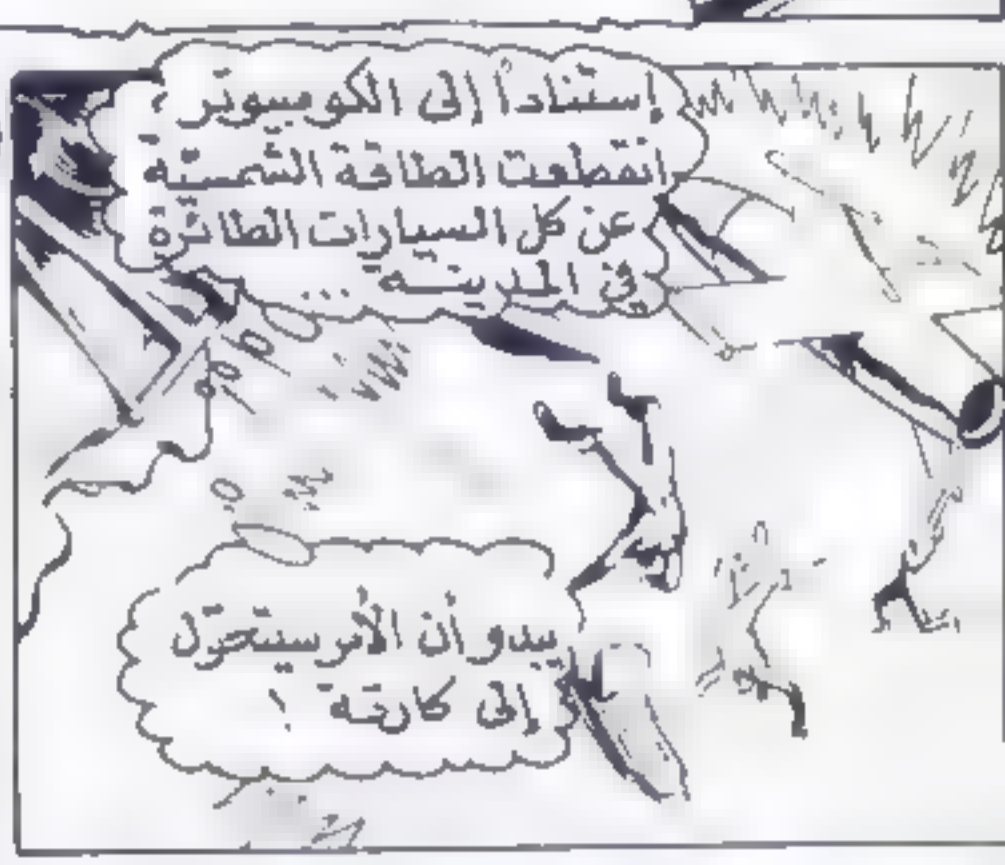 إستناداً إلى الكومبيوتر
انقطعت الطاقة الشمسيّة
عن كل السيارات الطائرة
في المدينـه ...
يبدو أن الأمر سيتحوّل
إلى كارثة !